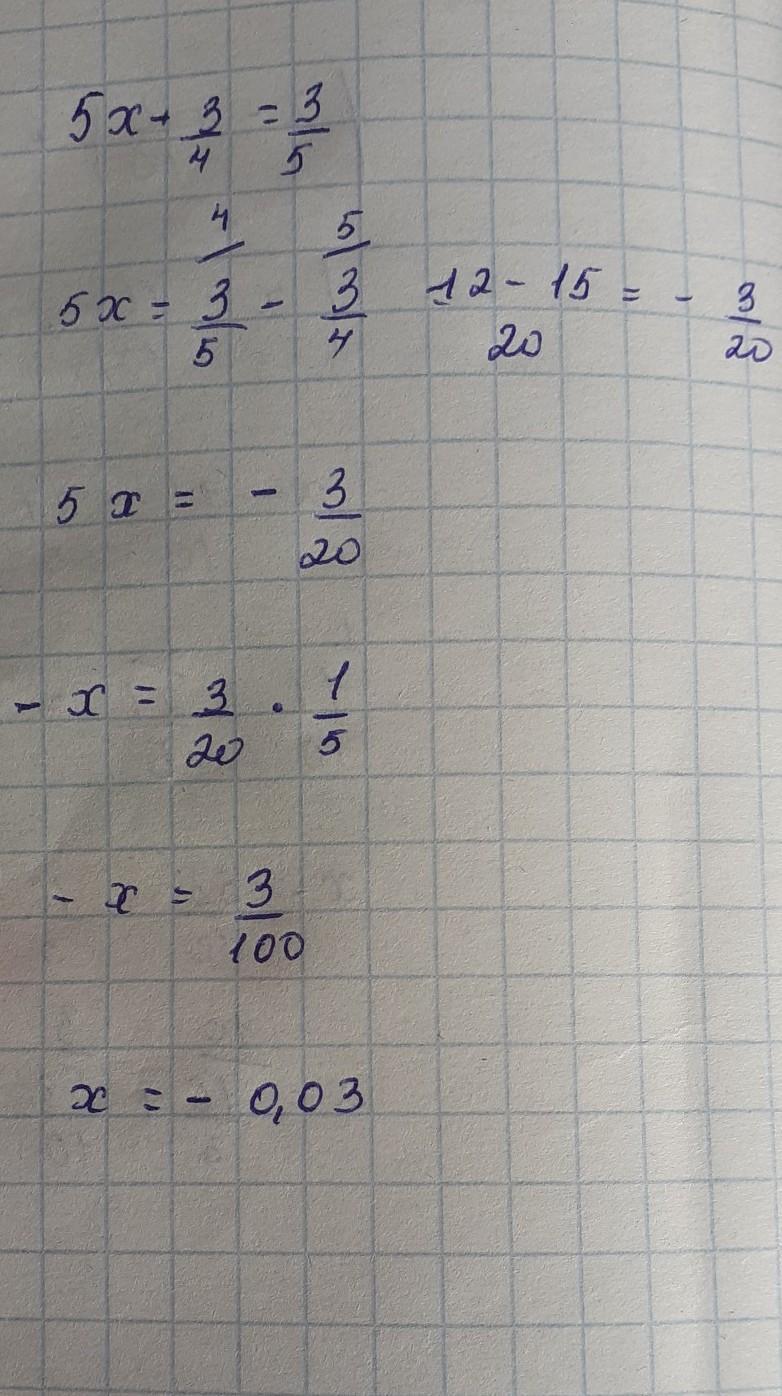 5x + 3/4 = 3/5
5x = 4/ 3/5 - 5/ 3/4 12 - 15/20 = - 3/20
5x = - 3/20
- x = 3/20 · 1/5
- x = 3/100
x = - 0,03